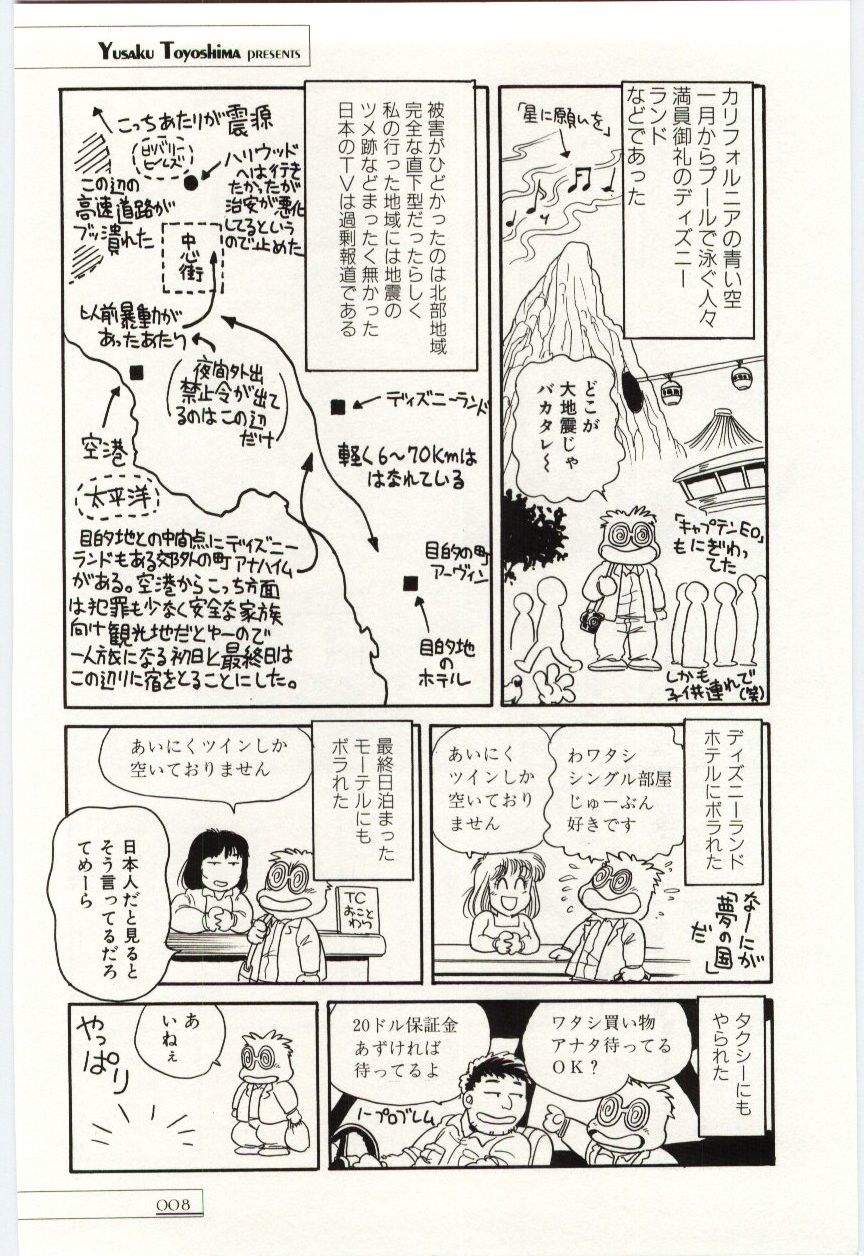 YUSAKU TOYOSHIMA PRESENTS
カリフォルニアの青い空
一月からプールで泳ぐ人々
満員御礼のディズニー
ランド
などであった
「星に願いを」
どこが
大地震じゃ
バカタレ〜
「キャプテンEO」
もにぎわっ
てた
しかも
子供連れで
(笑)
被害がひどかったのは北部地域
完全な直下型だったらしく
私の行った地域には地震の
ツメ跡などまったく無かった
日本のTVは過剰報道である
こっちあたりが震源
ビバリー
ヒルズ
ハリウッド
へは行き
たかったが
治安が悪化
してるという
ので止めた
この辺の
高速道路が
ブッ潰れた
中心街
ヒト前暴動が
あったあたり
(夜間外出
禁止令が出て
るのはこの辺
だけ)
空港
太平洋
ディズニーランド
軽く6〜70Kmは
はなれている
目的の町
アーヴィン
目的地
の
ホテル
目的地との中間点にディズニー
ランドもある郊外の町アナハイム
がある。空港からこっち方面
は犯罪も少なく安全な家族
向け観光地だとゆーので
一人旅になる初日と最終日は
この辺りに宿をとることにした。
ディズニーランド
ホテルにボラれた
わワタシ
シングル部屋
じゅーぶん
好きです
あいにく
ツインしか
空いており
ません
なーにが
「夢の国」
だ
最終日泊まった
モーテルにも
ボラれた
あいにくツインしか
空いておりません
TC
おことわり
日本人だと見ると
そう言ってるだろ
てめーら
タクシーにも
やられた
ワタシ買い物
アナタ待ってる
OK?
20ドル保証金
あずければ
待ってるよ
ノープロブレム
あ
いねぇ
やっぱり
008